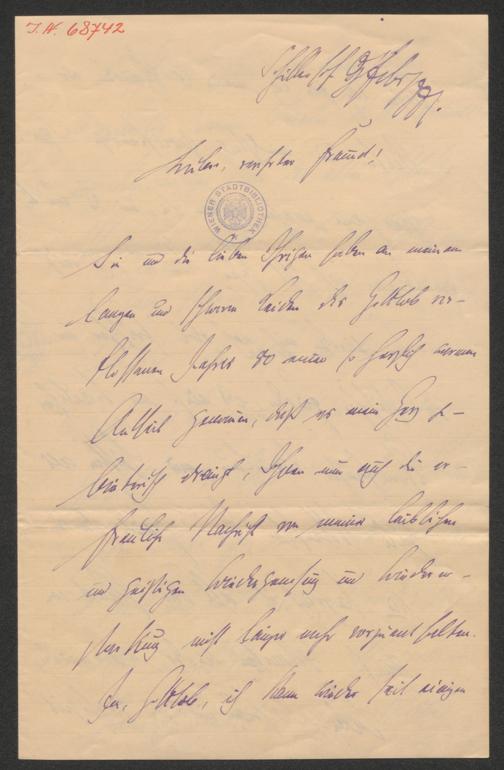 J.N. 68742
Lieber, verehrter Freund!
WIENER STADTBIBLIOTHEK
Sie und die lieben Ihrigen haben an meinem
langen und schweren Leiden des Gottlob ver-
flossenen Jahres 80 einen so herzlich warmen
Antheil genommen, daß es mein Herz ge-
bieterisch drängt, Ihnen nun auch die er-
freuliche Nachricht von meiner leiblichen
und geistigen Wiedergenesung und Wiederer-
starkung nicht länger mehr vorzuenthalten.
Ja, Gottlob, ich kann wieder seit einigen